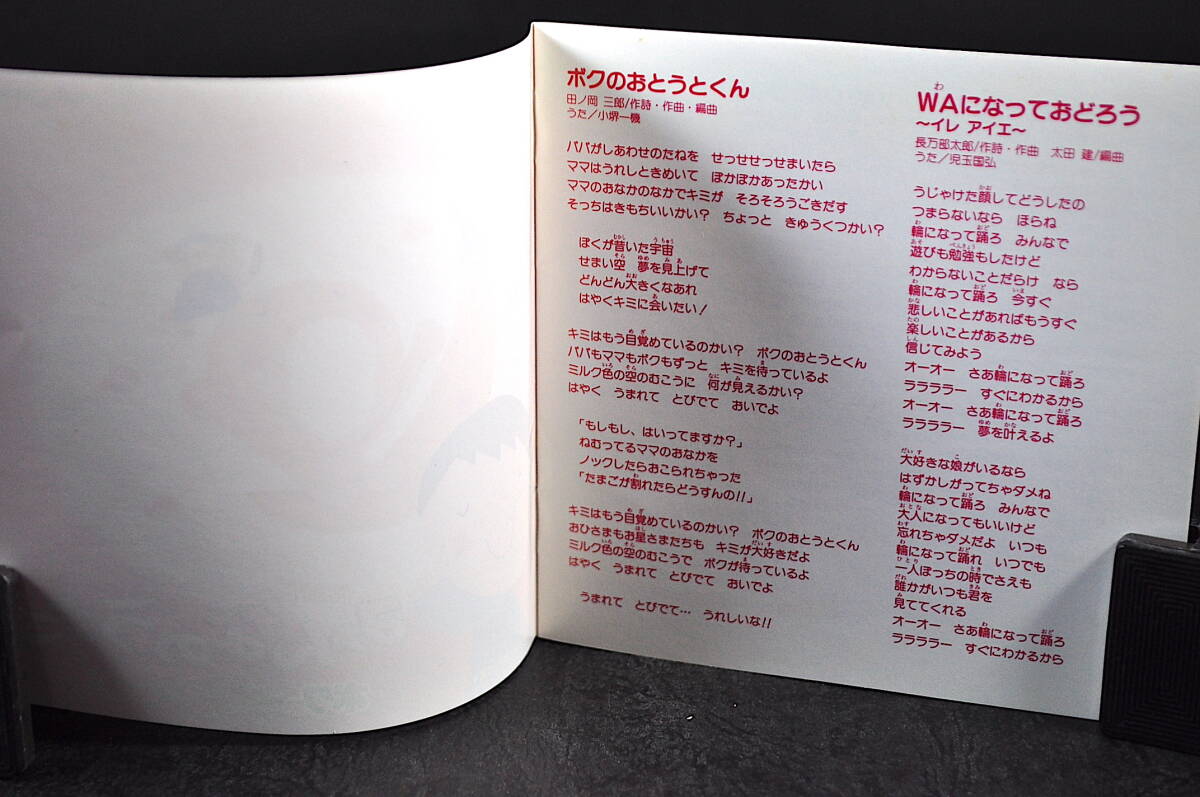 ボクのおとうとくん
田ノ岡 三郎/作詩・作曲・編曲
うた/小堺一機
パパがしあわせのたねを せっせせっせまいたら
ママはうれしときめいて ぽかぽかあったかい
ママのおなかのなかでキミが そろそろうごきだす
そっちはきもちいいかい? ちょっと きゅうくつかい?
ぼくが昔いた宇宙
せまい空 夢を見上げて
どんどん大きくなあれ
はやくキミに会いたい!
キミはもう目覚めているのかい? ボクのおとうとくん
パパもママもボクもずっと キミを待っているよ
ミルク色の空のむこうに 何が見えるかい?
はやく うまれて とびでて おいでよ
「もしもし、はいってますか?」
ねむってるママのおなかを
ノックしたらおこられちゃった
「たまごが割れたらどうすんの!!」
キミはもう目覚めているのかい? ボクのおとうとくん
おひさまもお星さまたちも キミが大好きだよ
ミルク色の空のむこうで ボクが待っているよ
はやく うまれて とびでて おいでよ
うまれて とびでて… うれしいな!!
WAになっておどろう
~イレ アイエ~
長万部太郎/作詩・作曲 太田 建/編曲
うた/児玉国弘
うじゃけた顔してどうしたの
つまらないなら ほらね
輪になって踊ろ みんなで
遊びも勉強もしたけど
わからないことだらけ なら
輪になって踊ろ 今すぐ
悲しいことがあればもうすぐ
楽しいことがあるから
信じてみよう
オーオー さあ輪になって踊ろ
ラララララー すぐにわかるから
オーオー さあ輪になって踊ろ
ラララララー 夢を叶えるよ
大好きな娘がいるなら
はずかしがってちゃダメね
輪になって踊ろ みんなで
大人になってもいいけど
忘れちゃダメだよ いつも
輪になって踊れ いつでも
一人ぼっちの時でさえも
誰かがいつも君を
見ててくれる
オーオー さあ輪になって踊ろ
ラララララー すぐにわかるから